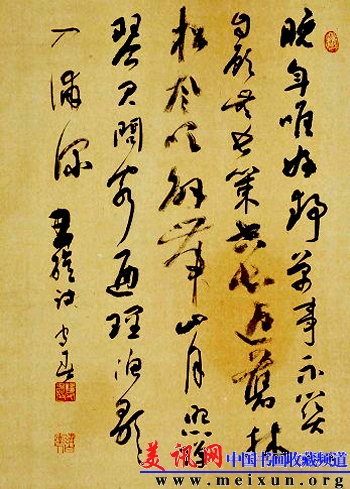 晚年唯好静万事不关心
自顾无长策空知返舊林
松风吹解带山月照弹
琴君问穷通理渔歌
入浦深 王维诗
美讯网 中国书画收藏频道
www.meixun.org